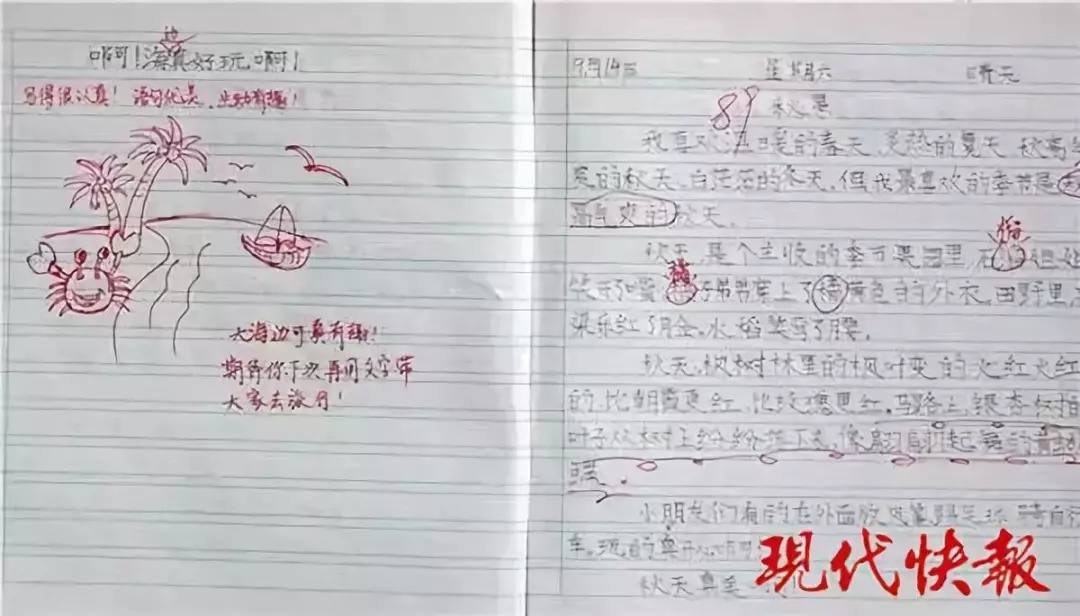 啊!海边真好玩啊!
写得很认真!语句优美,生动有趣!
大海边可真有趣!
期待你下次再用文字带
大家去旅行!
9月14日 星期六 晴天
89
秋
我喜欢温暖的春天,炎热的夏天,秋高气
爽的秋天,白茫茫的冬天,但我最喜欢的季节是
高气爽的秋天。
秋天,是个丰收的季节果园里,石榴姐姐
笑 了嘴 橘子弟弟穿上了橘黄色的外衣,田野里,
梁乐红了脸,水稻笑弯了腰。
秋天,枫树林里的枫叶变的火红火红
的,比朝霞更红,比玫瑰更红。马路上,银杏树
叶子从树上纷纷 下来,像翩翩起舞的黄
蝶。
小朋友们有的在外面放 踢足球 骑自行
车,玩的真开心啊
秋天真美
现代快报